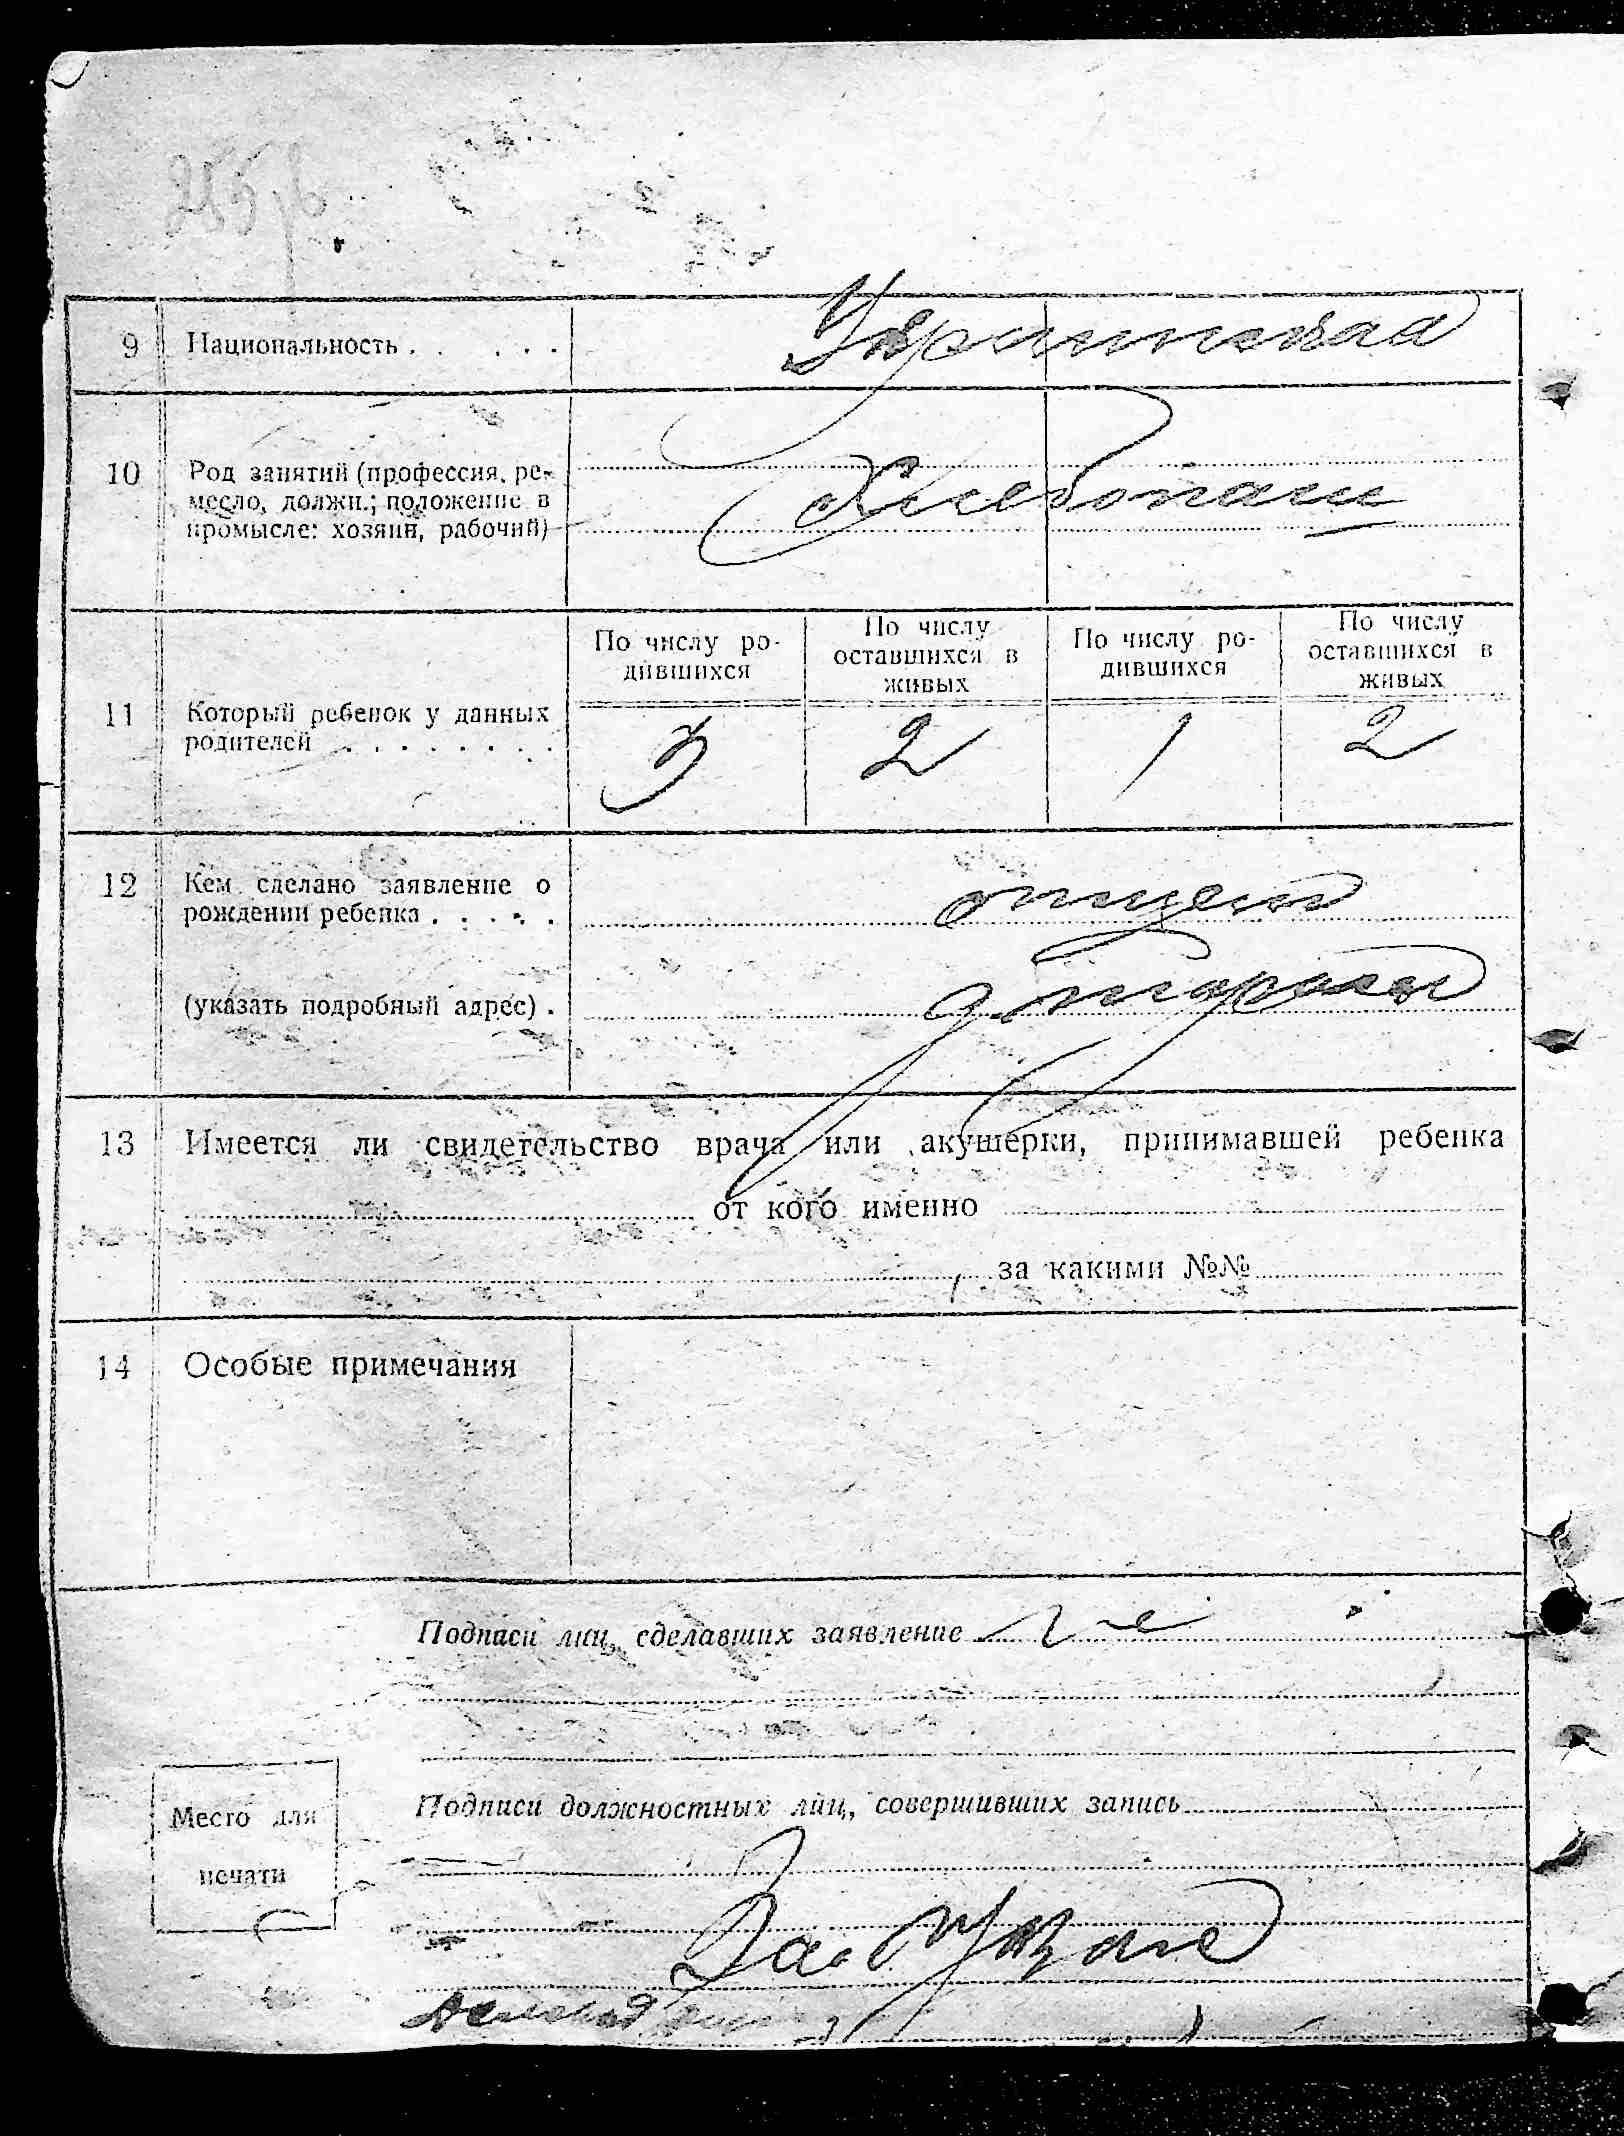 255
9 Национальность . . . . . . Украинская
10 Род занятий (профессия, ре-
месло, должн.; положение в
промысле: хозяин, рабочий)
Хлебопаш
По числу ро-
дившихся
По числу
оставшихся в
живых
По числу ро-
дившихся
По числу
оставшихся в
живых
11 Который ребенок у данных
родителей . . . . . . . .
3 2 1 2
12 Кем сделано заявление о
рождении ребенка . . . . . отцем
(указать подробный адрес) .
13 Имеется ли свидетельство врача или акушерки, принимавшей ребенка
от кого именно
за какими №№
14 Особые примечания
Подписи лиц, сделавших заявление
Подписи должностных лиц, совершивших запись
Место для
печати